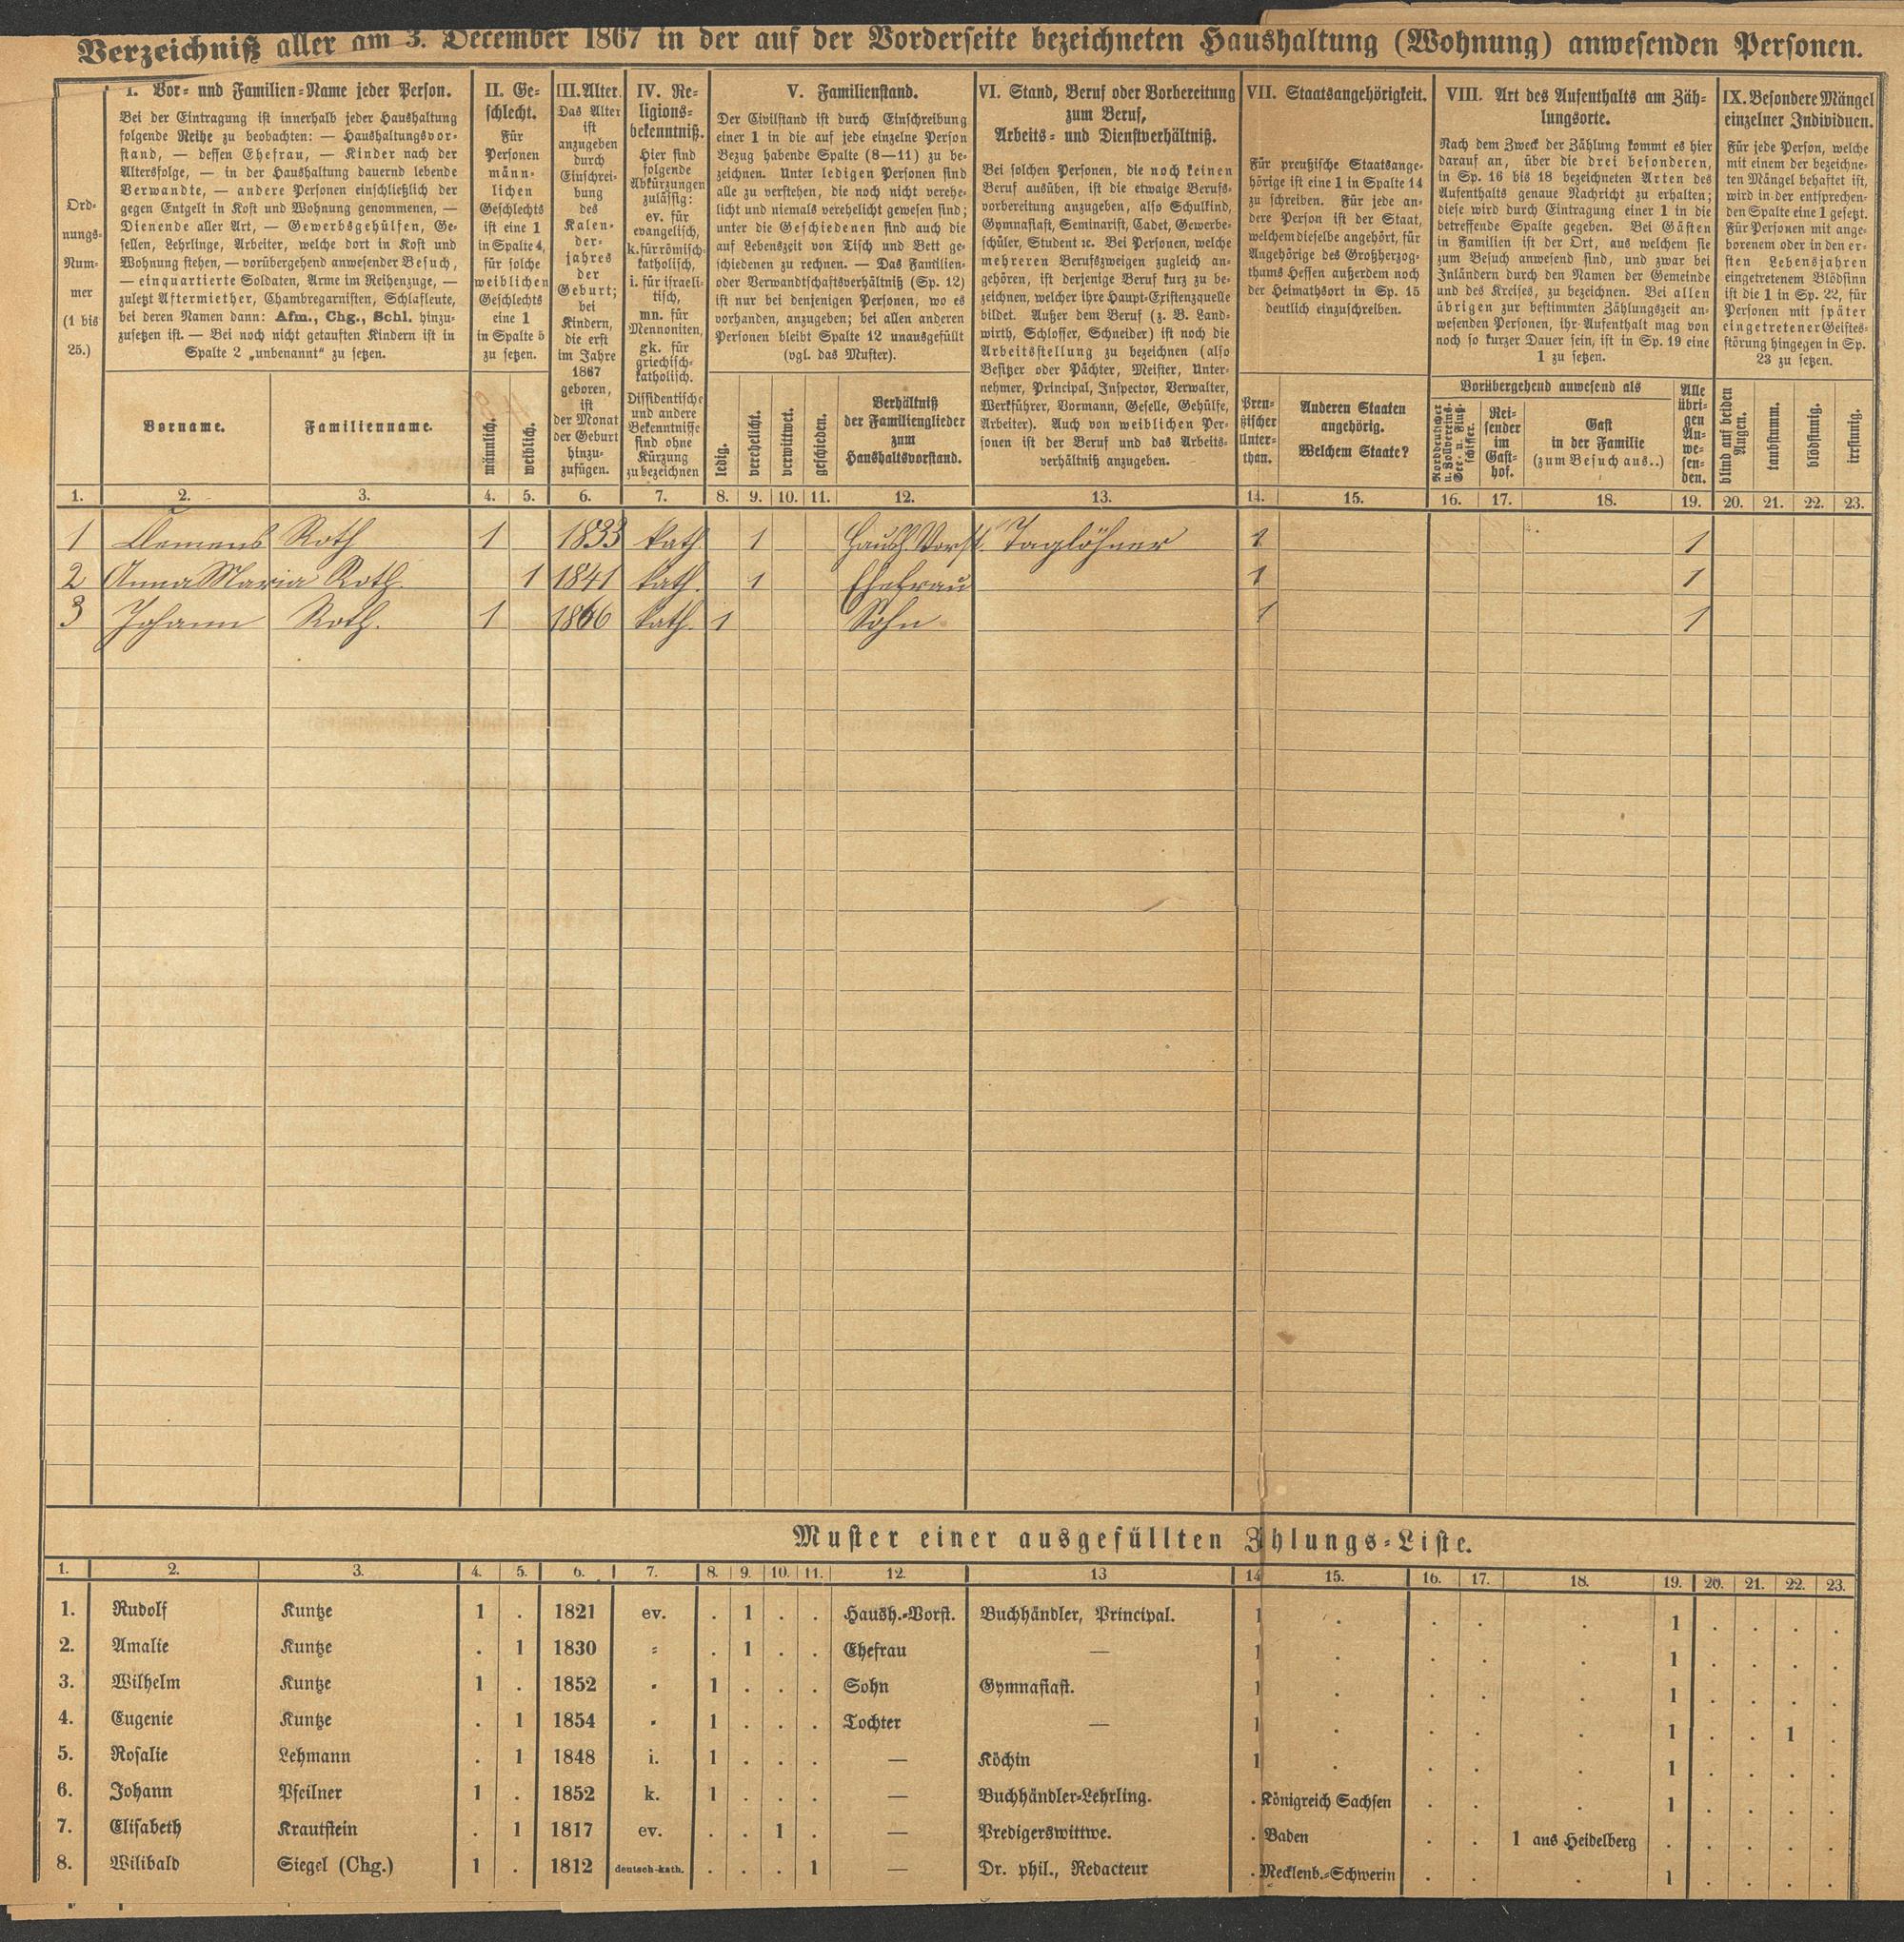 Verzeichniß aller am 3. December 1867 in der auf der Vorderseite bezeichneten Haushaltung (Wohnung) anwesenden Personen.
Ord-
nungs-
Num-
mer
(1 bis
25.)
I. Vor- und Familien-Name jeder Person.
Bei der Eintragung ist innerhalb jeder Haushaltung
folgende Reihe zu beobachten: — Haushaltungsvor-
stand, — dessen Ehefrau, — Kinder nach der
Altersfolge, — in der Haushaltung dauernd lebende
Verwandte, — andere Personen einschließlich der
gegen Entgelt in Kost und Wohnung genommenen, —
Dienende aller Art, — Gewerbsgehülfen, Ge-
sellen, Lehrlinge, Arbeiter, welche dort in Kost und
Wohnung stehen, — vorübergehend anwesender Besuch,
— einquartierte Soldaten, Arme im Reihenzuge, —
zuletzt Aftermiether, Chambregarnisten, Schlafleute,
bei deren Namen dann: Afm., Chg., Schl. hinzu-
zusetzen ist. — Bei noch nicht getauften Kindern ist in
Spalte 2 „unbenannt“ zu setzen.
Vorname.
Familienname.
II. Ge-
schlecht.
Für
Personen
männ-
lichen
Geschlechts
ist eine 1
in Spalte 4,
für solche
weiblichen
Geschlechts
eine 1
in Spalte 5
zu setzen.
männlich.
weiblich.
III. Alter.
Das Alter
ist
anzugeben
durch
Einschrei-
bung
des
Kalen-
der-
jahres
der
Geburt;
bei
Kindern,
die erst
im Jahre
1867
geboren,
ist
der Monat
der Geburt
hinzu-
zufügen.
IV. Re-
ligions-
bekenntniß.
Hier sind
folgende
Abkürzungen
zulässig:
ev. für
evangelisch,
k. für römisch-
katholisch,
i. für israeli-
tisch,
mn. für
Mennoniten,
gk. für
griechisch-
katholisch.
Dissidentische
und andere
Bekenntnisse
sind ohne
Kürzung
zu bezeichnen
V. Familienstand.
Der Civilstand ist durch Einschreibung
einer 1 in die auf jede einzelne Person
Bezug habende Spalte (8—11) zu be-
zeichnen. Unter ledigen Personen sind
alle zu verstehen, die noch nicht verehe-
licht und niemals verehelicht gewesen sind;
unter die Geschiedenen sind auch die
auf Lebenszeit von Tisch und Bett ge-
schiedenen zu rechnen. — Das Familien-
oder Verwandtschaftsverhältniß (Sp. 12)
ist nur bei denjenigen Personen, wo es
vorhanden, anzugeben; bei allen anderen
Personen bleibt Spalte 12 unausgefüllt
(vgl. das Muster).
ledig.
verehelicht.
verwittwet.
geschieden.
Verhältniß
der Familienglieder
zum
Haushaltsvorstand.
VI. Stand, Beruf oder Vorbereitung
zum Beruf,
Arbeits- und Dienstverhältniß.
Bei solchen Personen, die noch keinen
Beruf ausüben, ist die etwaige Berufs-
vorbereitung anzugeben, also Schulkind,
Gymnasiast, Seminarist, Cadet, Gewerbe-
schüler, Student ec. Bei Personen, welche
mehreren Berufszweigen zugleich an-
gehören, ist derjenige Beruf kurz zu be-
zeichnen, welcher ihre Haupt-Existenzquelle
bildet. Außer dem Beruf (z. B. Land-
wirth, Schlosser, Schneider) ist noch die
Arbeitsstellung zu bezeichnen (also
Besitzer oder Pächter, Meister, Unter-
nehmer, Principal, Inspector, Verwalter,
Werkführer, Vormann, Geselle, Gehülfe,
Arbeiter). Auch von weiblichen Per-
sonen ist der Beruf und das Arbeits-
verhältniß anzugeben.
VII. Staatsangehörigkeit.
Für preußische Staatsange-
hörige ist eine 1 in Spalte 14
zu schreiben. Für jede an-
dere Person ist der Staat,
welchem dieselbe angehört, für
Angehörige des Großherzog-
thums Hessen außerdem noch
der Heimathsort in Sp. 15
deutlich einzuschreiben.
Preu-
ßischer
Unter-
than.
Anderen Staaten
angehörig.
Welchem Staate?
VIII. Art des Aufenthalts am Zäh-
lungsorte.
Nach dem Zweck der Zählung kommt es hier
darauf an, über die drei besonderen,
in Sp. 16 bis 18 bezeichneten Arten des
Aufenthalts genaue Nachricht zu erhalten;
diese wird durch Eintragung einer 1 in die
betreffende Spalte gegeben. Bei Gästen
in Familien ist der Ort, aus welchem sie
zum Besuch anwesend sind, und zwar bei
Inländern durch den Namen der Gemeinde
und des Kreises, zu bezeichnen. Bei allen
übrigen zur bestimmten Zählungszeit an-
wesenden Personen, ihr Aufenthalt mag von
noch so kurzer Dauer sein, ist in Sp. 19 eine
1 zu setzen.
Vorübergehend anwesend als
Norddeutscher
u. Zollvereins-
See- u. Fluß-
schiffer.
Rei-
sender
im
Gast-
hof.
Gast
in der Familie
(zum Besuch aus..)
Alle
übri-
gen
An-
we-
sen-
den.
IX. Besondere Mängel
einzelner Individuen.
Für jede Person, welche
mit einem der bezeichne-
ten Mängel behaftet ist,
wird in der entsprechen-
den Spalte eine 1 gesetzt.
Für Personen mit ange-
borenem oder in den er-
sten Lebensjahren
eingetretenem Blödsinn
ist die 1 in Sp. 22, für
Personen mit später
eingetretener Geistes-
störung hingegen in Sp.
23 zu setzen.
blind auf beiden
Augen.
taubstumm.
blödsinnig.
irrsinnig.
1. 2. 3. 4. 5. 6. 7. 8. 9. 10. 11. 12. 13. 14. 15. 16. 17. 18. 19. 20. 21. 22. 23.
1 Clemens Roth 1 1833 kath. 1 Haush. Vorst. Taglöhner 1 1
2 Anna Maria Roth. 1 1841 kath. 1 Ehefrau 1 1
3 Johann Roth. 1 1866 kath. 1 Sohn 1 1
Muster einer ausgefüllten Zählungs-Liste.
1. 2. 3. 4. 5. 6. 7. 8. 9. 10. 11. 12. 13 14 15. 16. 17. 18. 19. 20. 21. 22. 23.
1. Rudolf Kuntze 1 . 1821 ev. . 1 . . Haush.-Vorst. Buchhändler, Principal. 1 . . . . 1 . . . .
2. Amalie Kuntze . 1 1830 „ . 1 . . Ehefrau — 1 . . . . 1 . . . .
3. Wilhelm Kuntze 1 . 1852 „ 1 . . . Sohn Gymnasiast. 1 . . . . 1 . . . .
4. Eugenie Kuntze . 1 1854 „ 1 . . . Tochter — 1 . . . . 1 . . 1 .
5. Rosalie Lehmann . 1 1848 i. 1 . . . — Köchin 1 . . . . 1 . . . .
6. Johann Pfeilner 1 . 1852 k. 1 . . . — Buchhändler-Lehrling. . Königreich Sachsen . . . 1 . . . .
7. Elisabeth Krautstein . 1 1817 ev. . . 1 . — Predigerswittwe. . Baden . . 1 aus Heidelberg . . . . .
8. Wilibald Siegel (Chg.) 1 . 1812 deutsch-kath. . . . 1 — Dr. phil., Redacteur . Mecklenb.-Schwerin . . . 1 . . . .